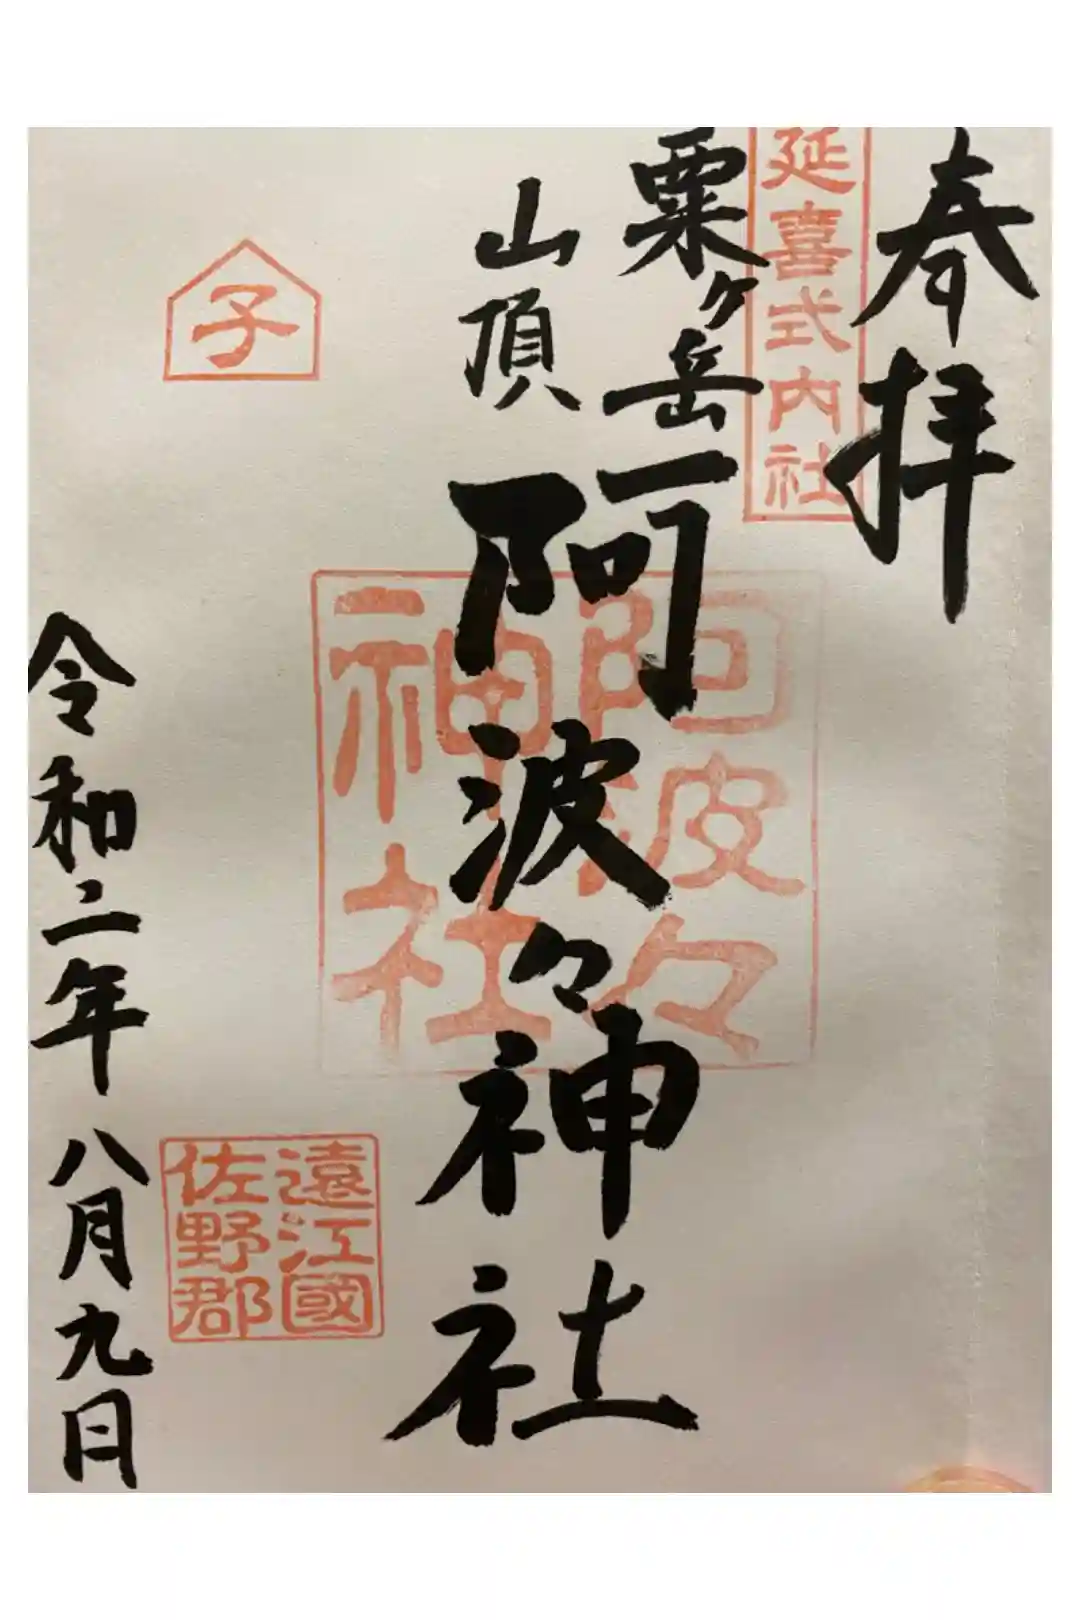 奉拝
延喜式内社
粟ヶ岳
山頂
阿波々神社
阿波々
神社
子
遠江國
佐野郡
令和二年八月九日